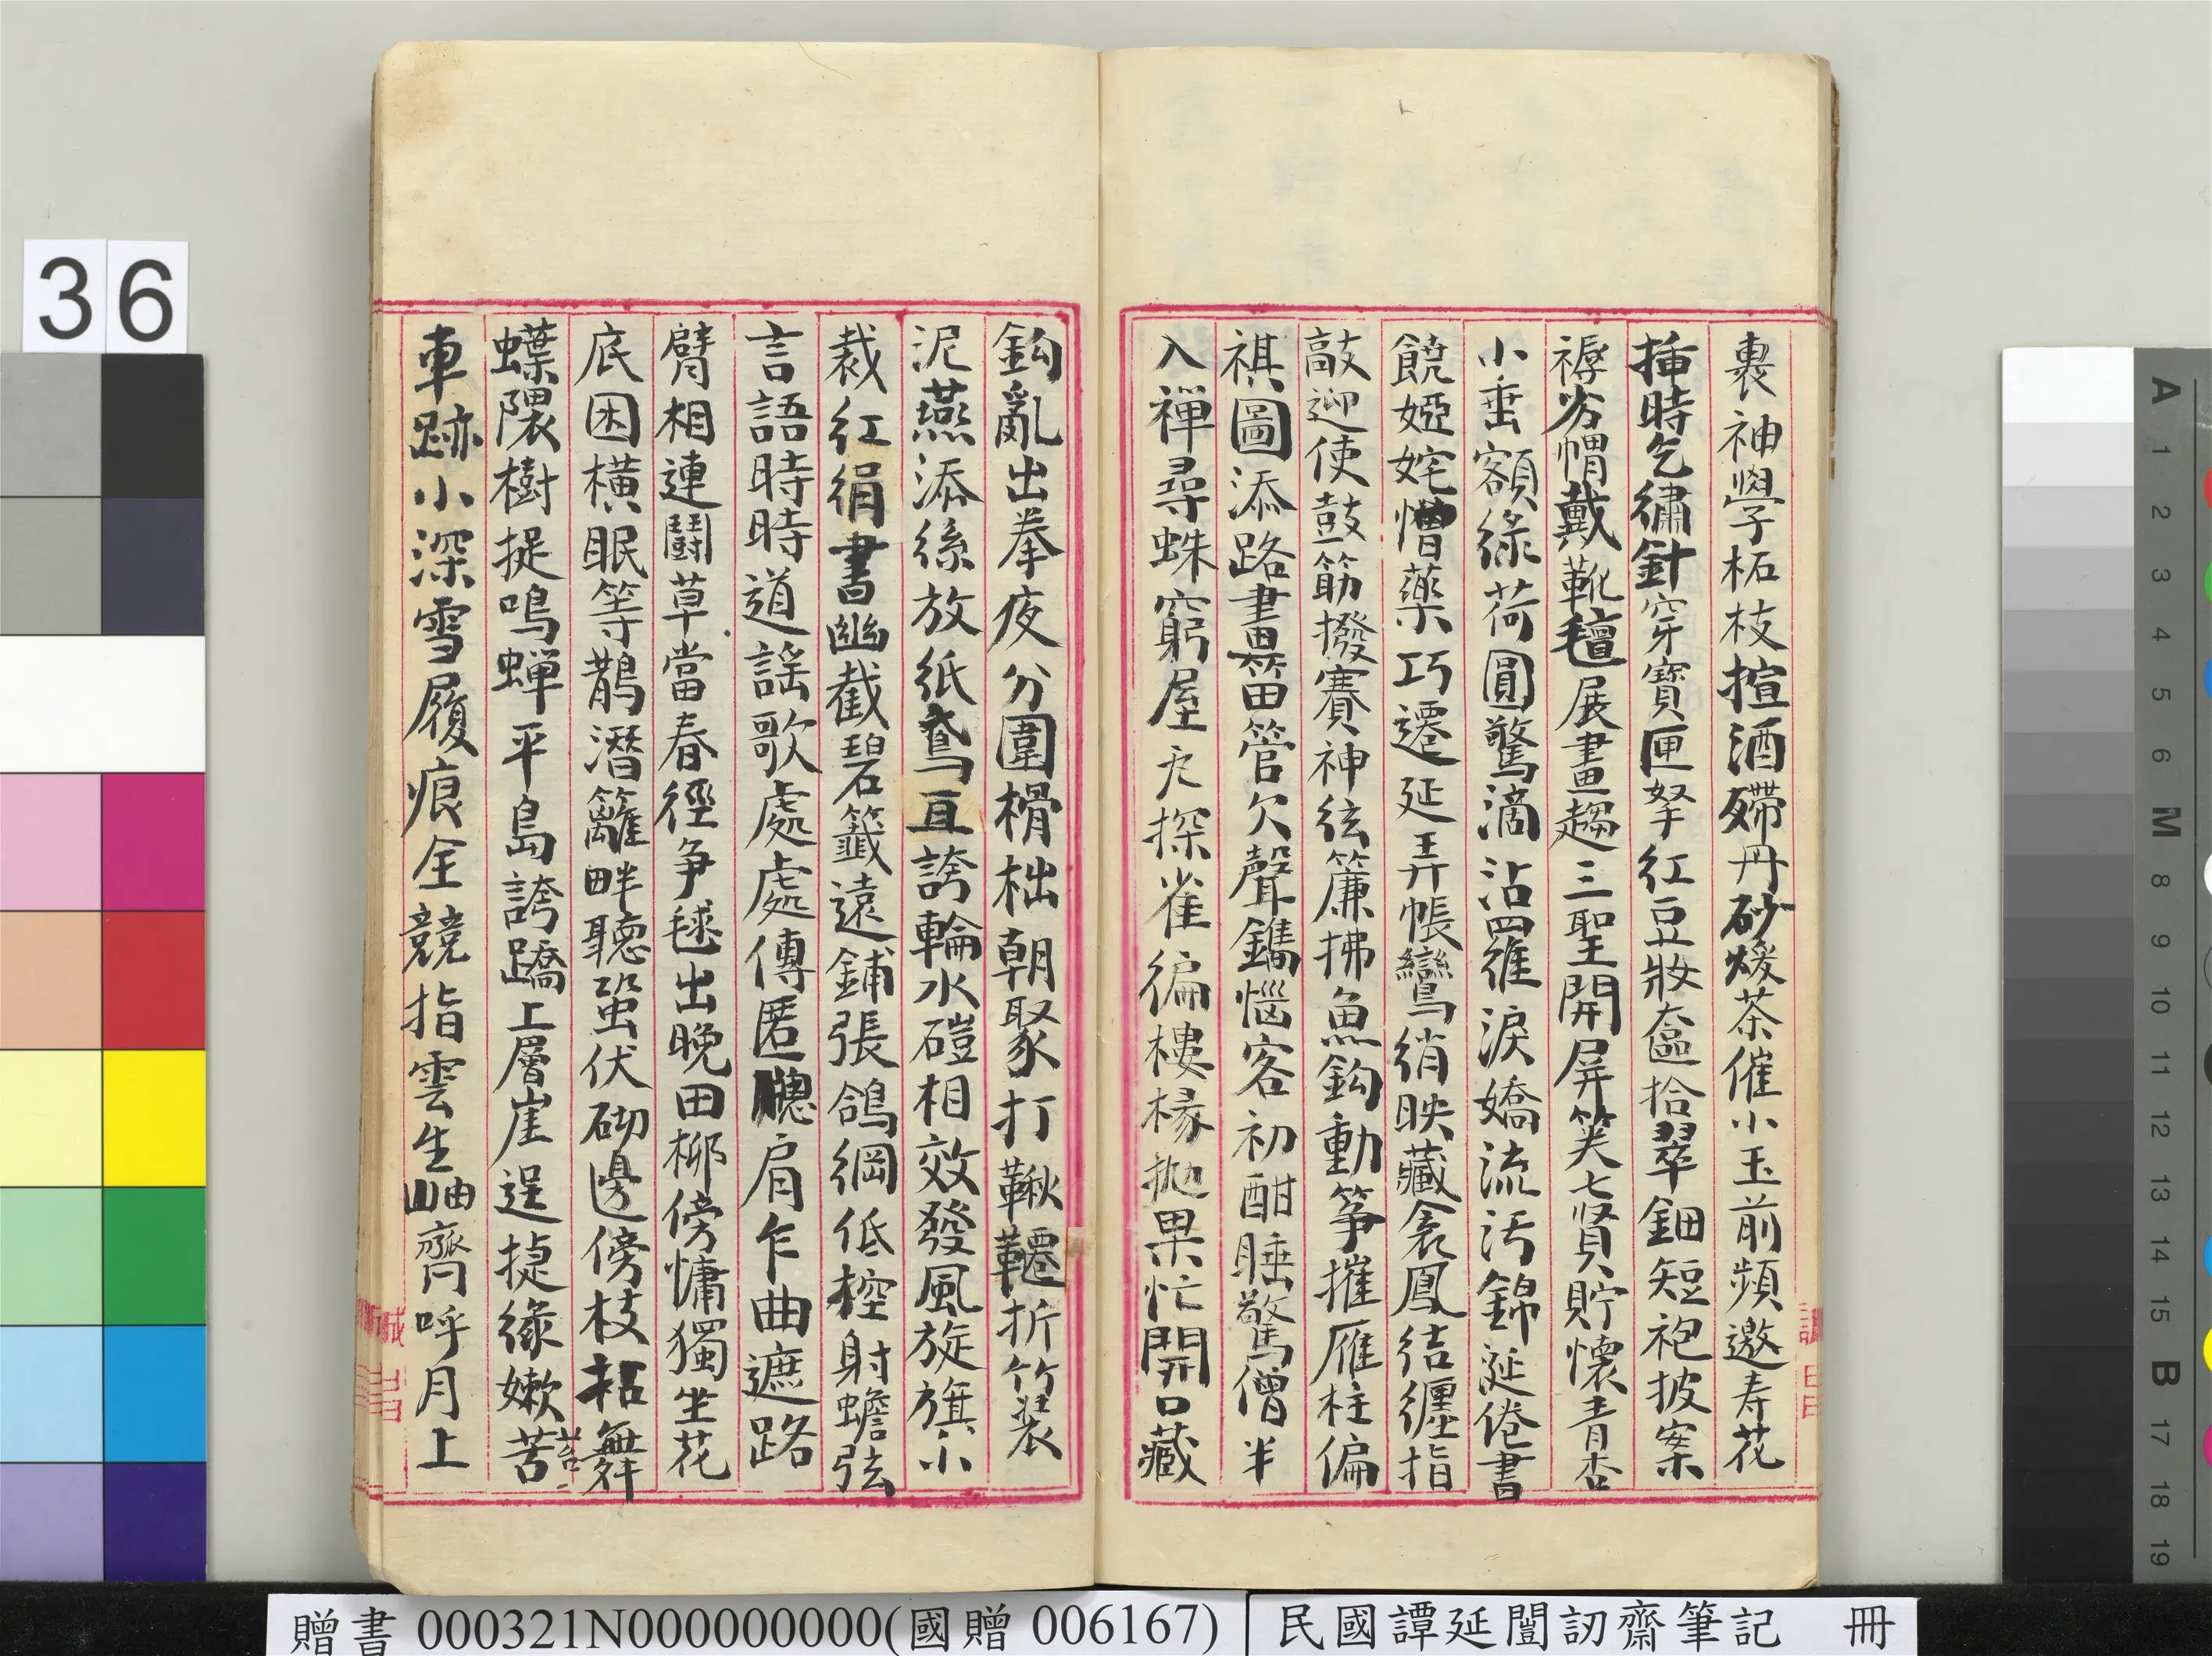 裹袖學柘枝揎酒殢丹砂煖茶催小玉前頻邀壽花
插時乞繡針穿寶匣拏紅豆妝奩拾翠鈿短袍披案
褥劣㡌戴靴氊展畫趨三聖開屏笑七賢貯懷青杏
小垂額綠荷圓驚滴沾羅淚嬌流污錦涎倦書
饒婭姹憎藥巧遷延弄帳鸞綃映藏衾鳳結纏指
敲迎使鼓筯撥賽神弦簾拂魚鈎動箏摧雁柱偏
祺圖添路畫笛管欠聲鐫惱客初酣睡驚僧半
入禪尋蛛窮屋瓦探雀徧樓椽拋果忙開口藏
鈎亂出拳夜分圍榾柮朝聚打鞦韆折竹裝
泥燕添絲放紙鳶互誇輪水磑相效發風旋旗小
裁紅絹書幽截碧籤遠鋪張鴿網低控射蟾弦
言語時時道謡歌處處傳匿聰肩乍曲遮路
臂相連鬬草當春徑爭毬出晚田柳傍慵獨坐花
底困橫眠等鵲潛籬畔聽蛩伏砌邊傍枝招舞
蝶隈樹捉鳴蟬平島誇蹻上層崖逞捷緣嫩苦
苔
車跡小深雪履痕全競指雲生岫齊呼月上
36
贈書 000321N000000000(國贈 006167)
民國譚延闓訒齋筆記 冊
A 1 2 3 4 5 6 M 8 9 10 11 12 13 14 15 B 17 18 19